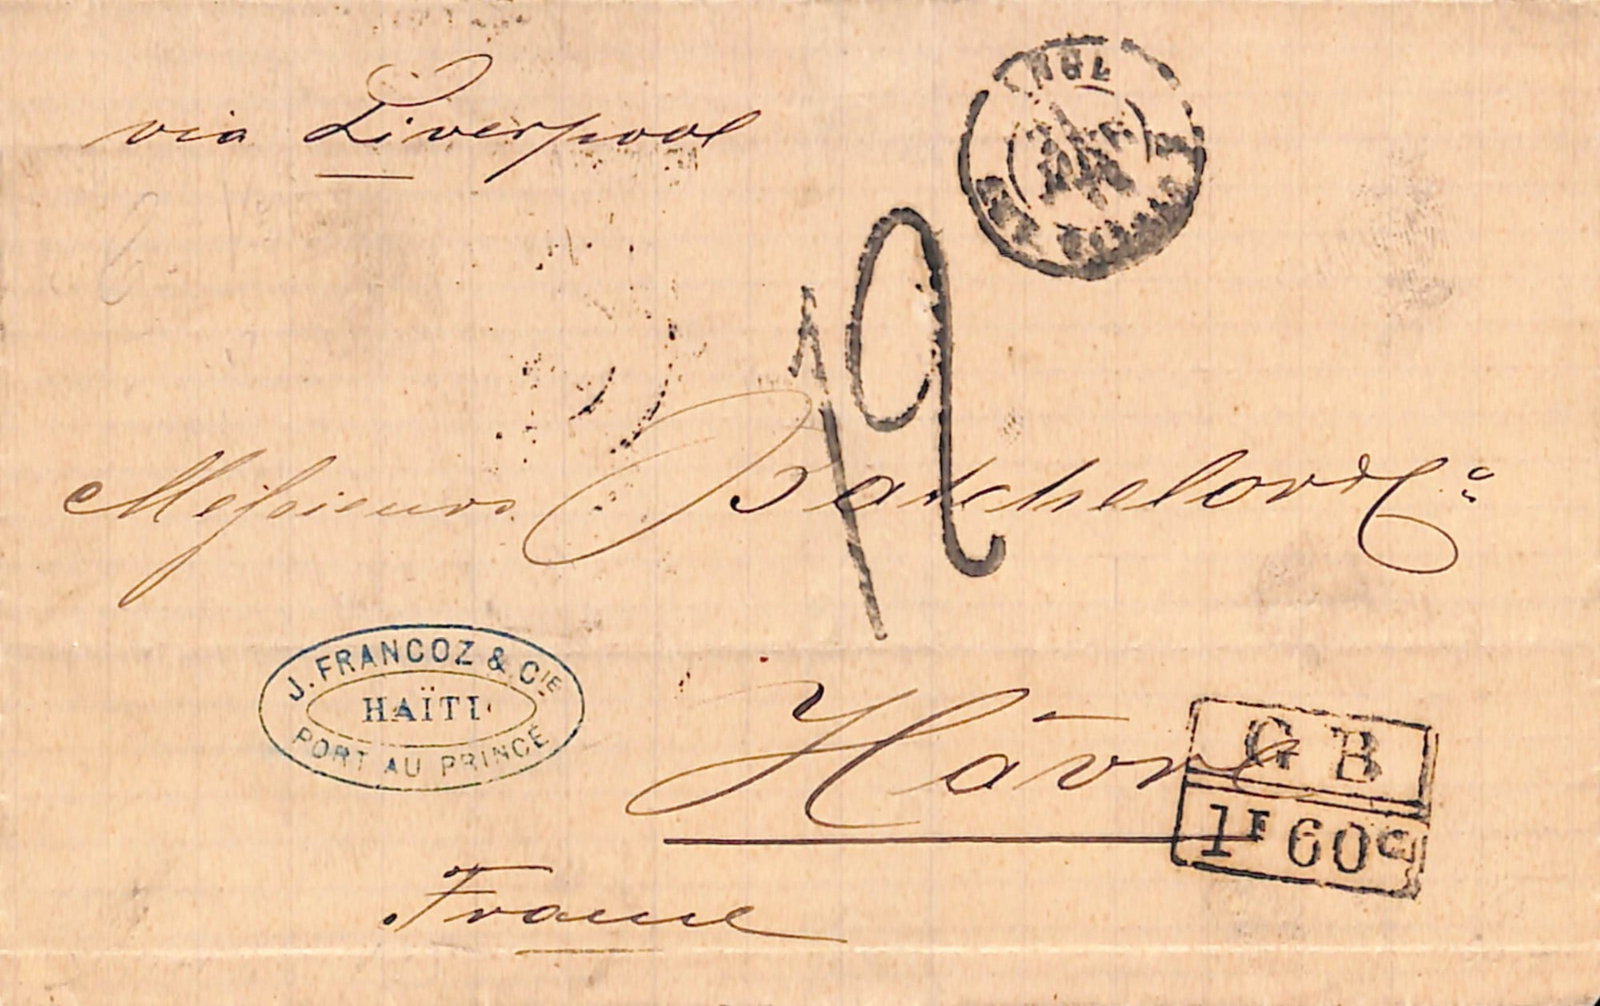 via Liverpool
ANGL
12
Messieurs Batchelor & Co
J. FRANCOZ & CIE
HAÏTI
PORT AU PRINCE
Hâvre
G B
1F 60c
France